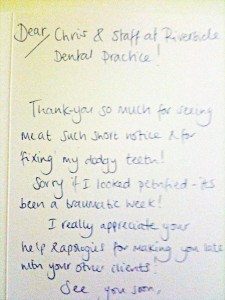 Dear Chris & Staff at Riverside
Dental Practice!
Thank-you so much for seeing
me at such short notice & for
'fixing' my dodgy teeth!
Sorry if I looked petrified - its
been a traumatic week!
I really appreciate your
help & apologies for making you late
with your other clients!
See you soon,